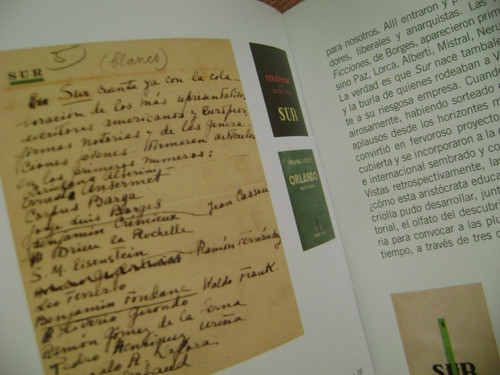 5 (blanco)
SUR
Sur cuenta ya con la cola-
boración de los más representativos
escritores americanos y europeos,
firmas notorias y de las genera-
ciones jóvenes firmarán artículos
en los primeros números:
Ernesto Ansermet
Corpus Barga
Jorge Luis Borges
Benjamin Crémieux Jean Cassou
Drieu la Rochelle
S. M. Eisenstein Ramón Fernández
Leo Ferrero
Benjamin Fondane Waldo Frank
Oliverio Girondo
Ramón Gómez de la Serna
Pedro Henríquez Ureña
SUR
ORLANDO
SUR
para nosotros. Allí entraron y p
dores, liberales y anarquistas. Las
Ficciones de Borges, aparecieron prim
sino Paz, Lorca, Alberti, Mistral, Neru
La verdad es que Sur nace tambié
y la burla de quienes rodeaban a V
te a su riesgosa empresa. Cuando
airosamente, habiendo sorteado
aplausos desde los horizontes
convirtió en fervoroso proyecto
cubierta y se incorporaron a la
e internacional sembrado y co
Vistas retrospectivamente, las
¿cómo esta aristócrata educa
criolla pudo desarrollar, jun
torial, el olfato del descubri
ria para convocar a las plu
tiempo, a través de tres d
SUR